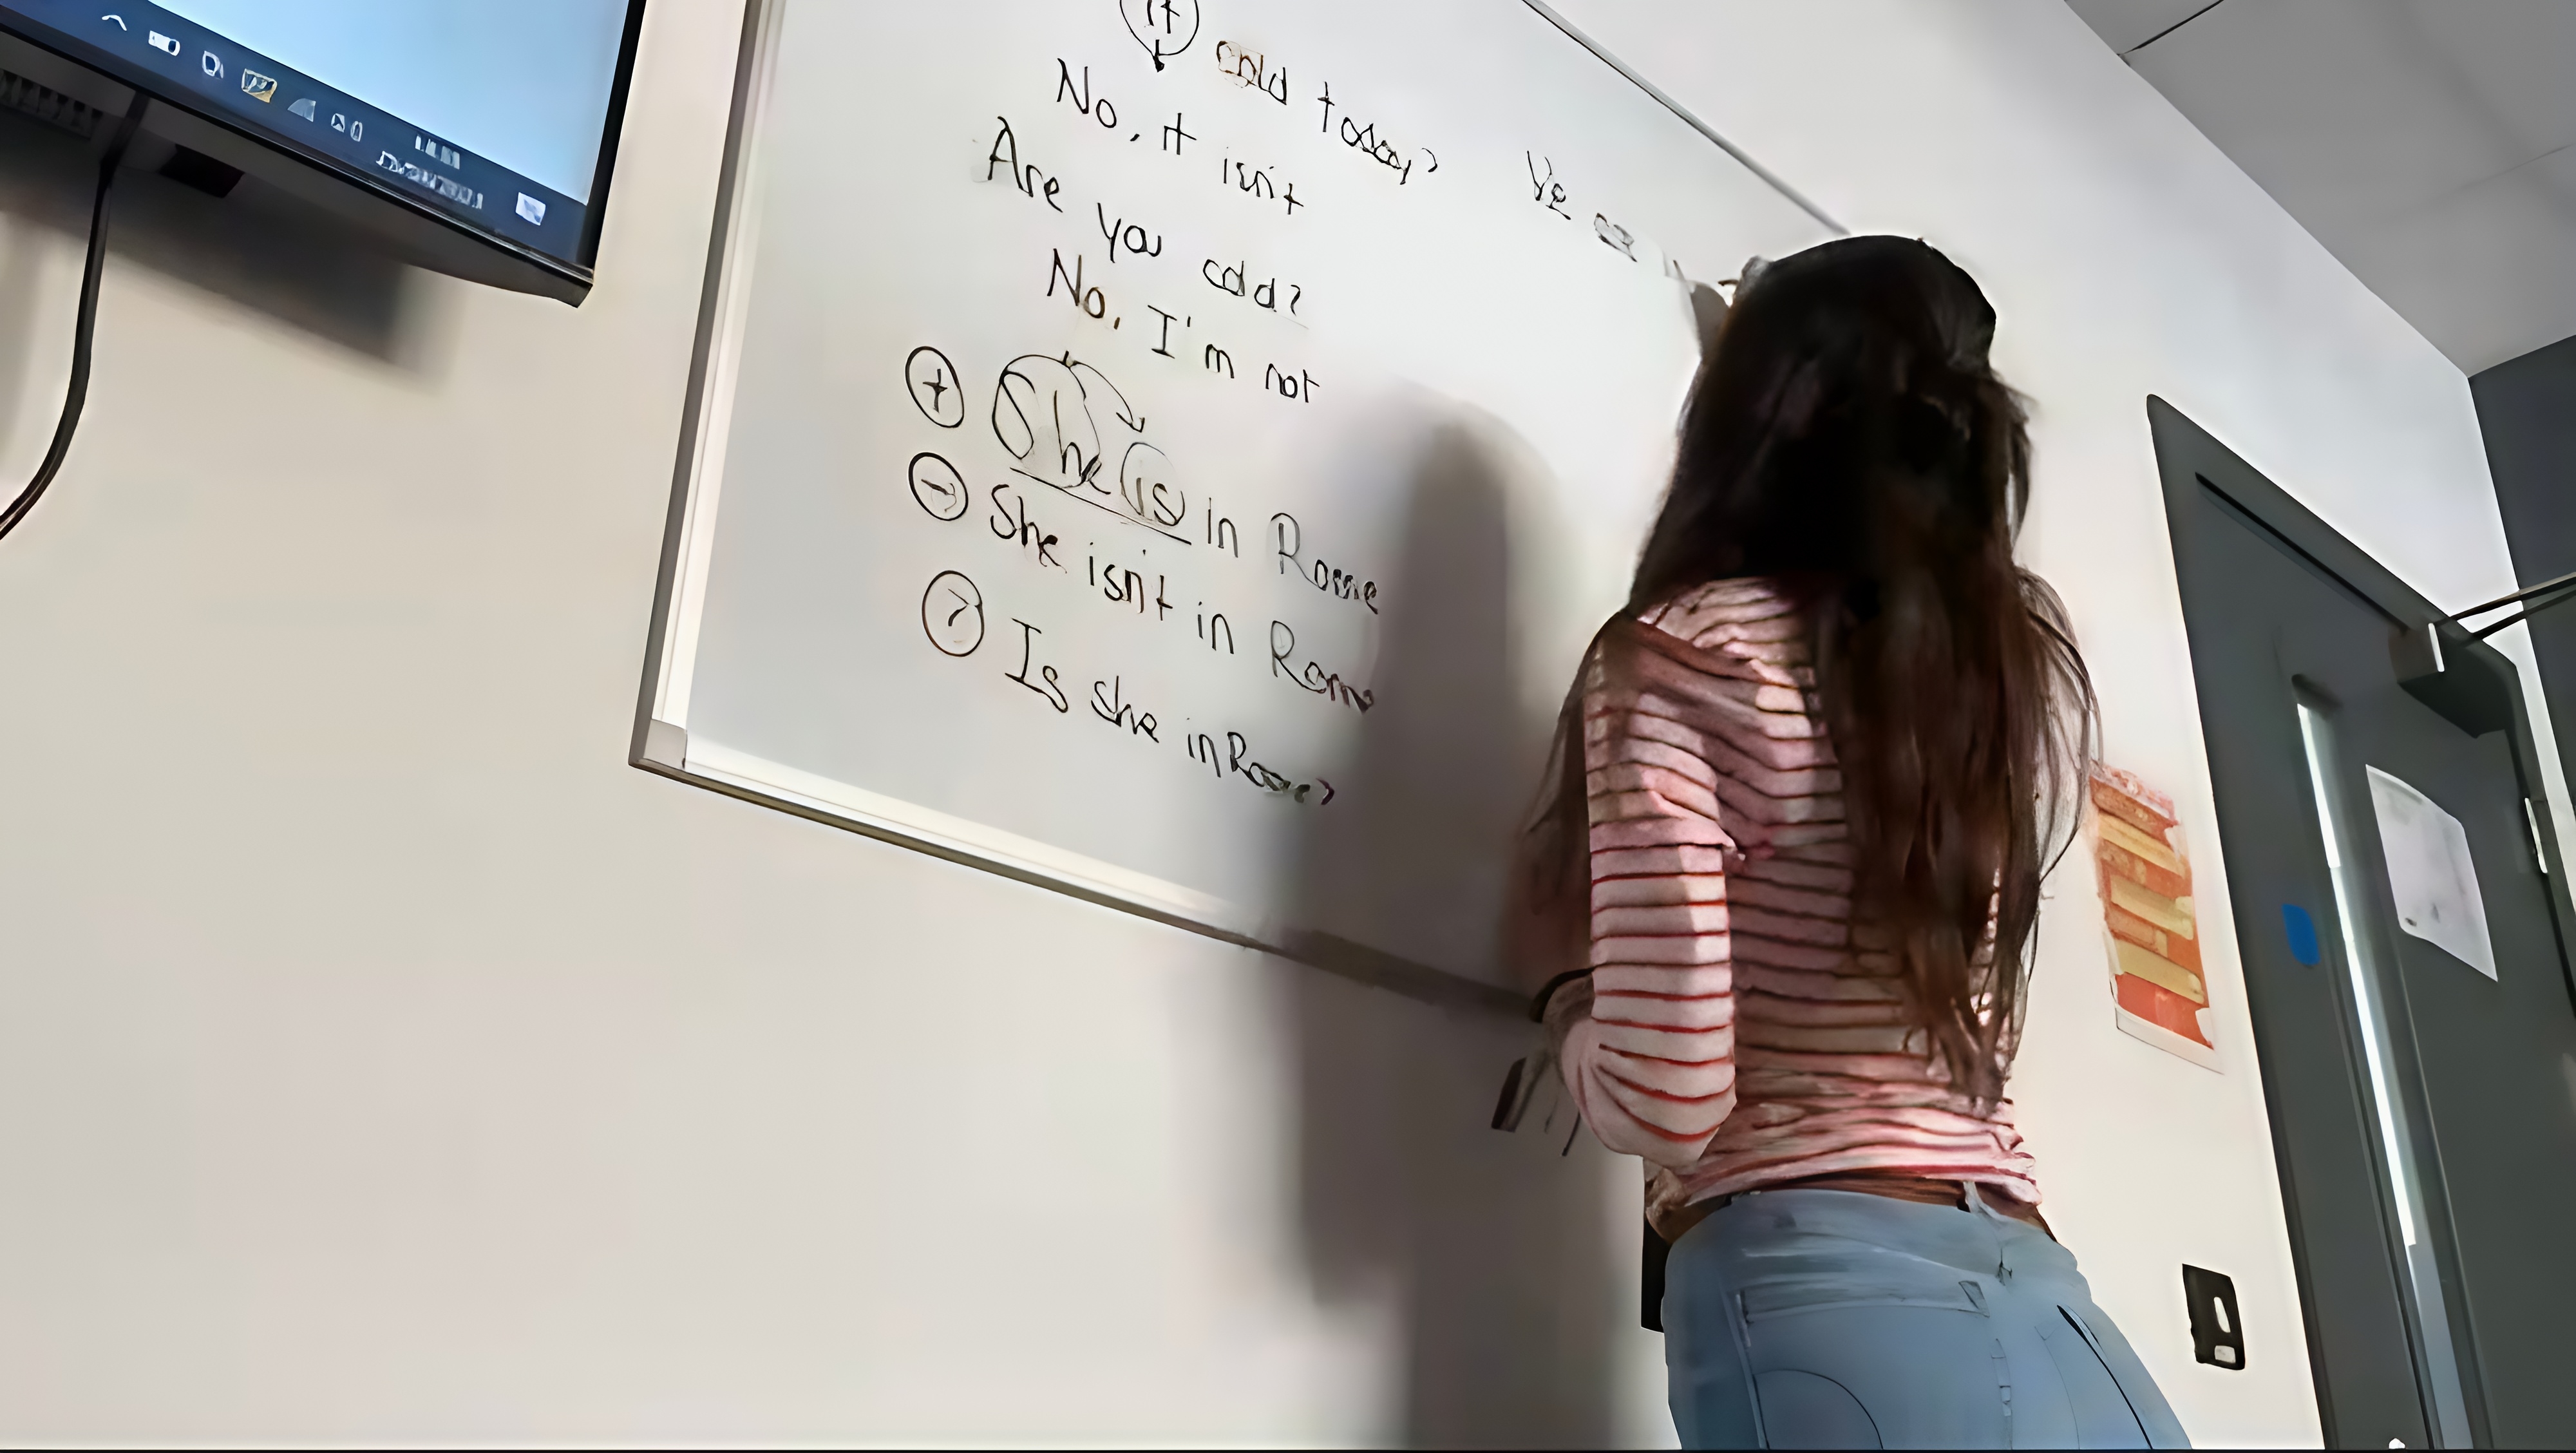 It cold today?
No, it isn't
Are you cold?
No, I'm not
+ She is in Rome
- She isn't in Rome
? Is she in Rome?